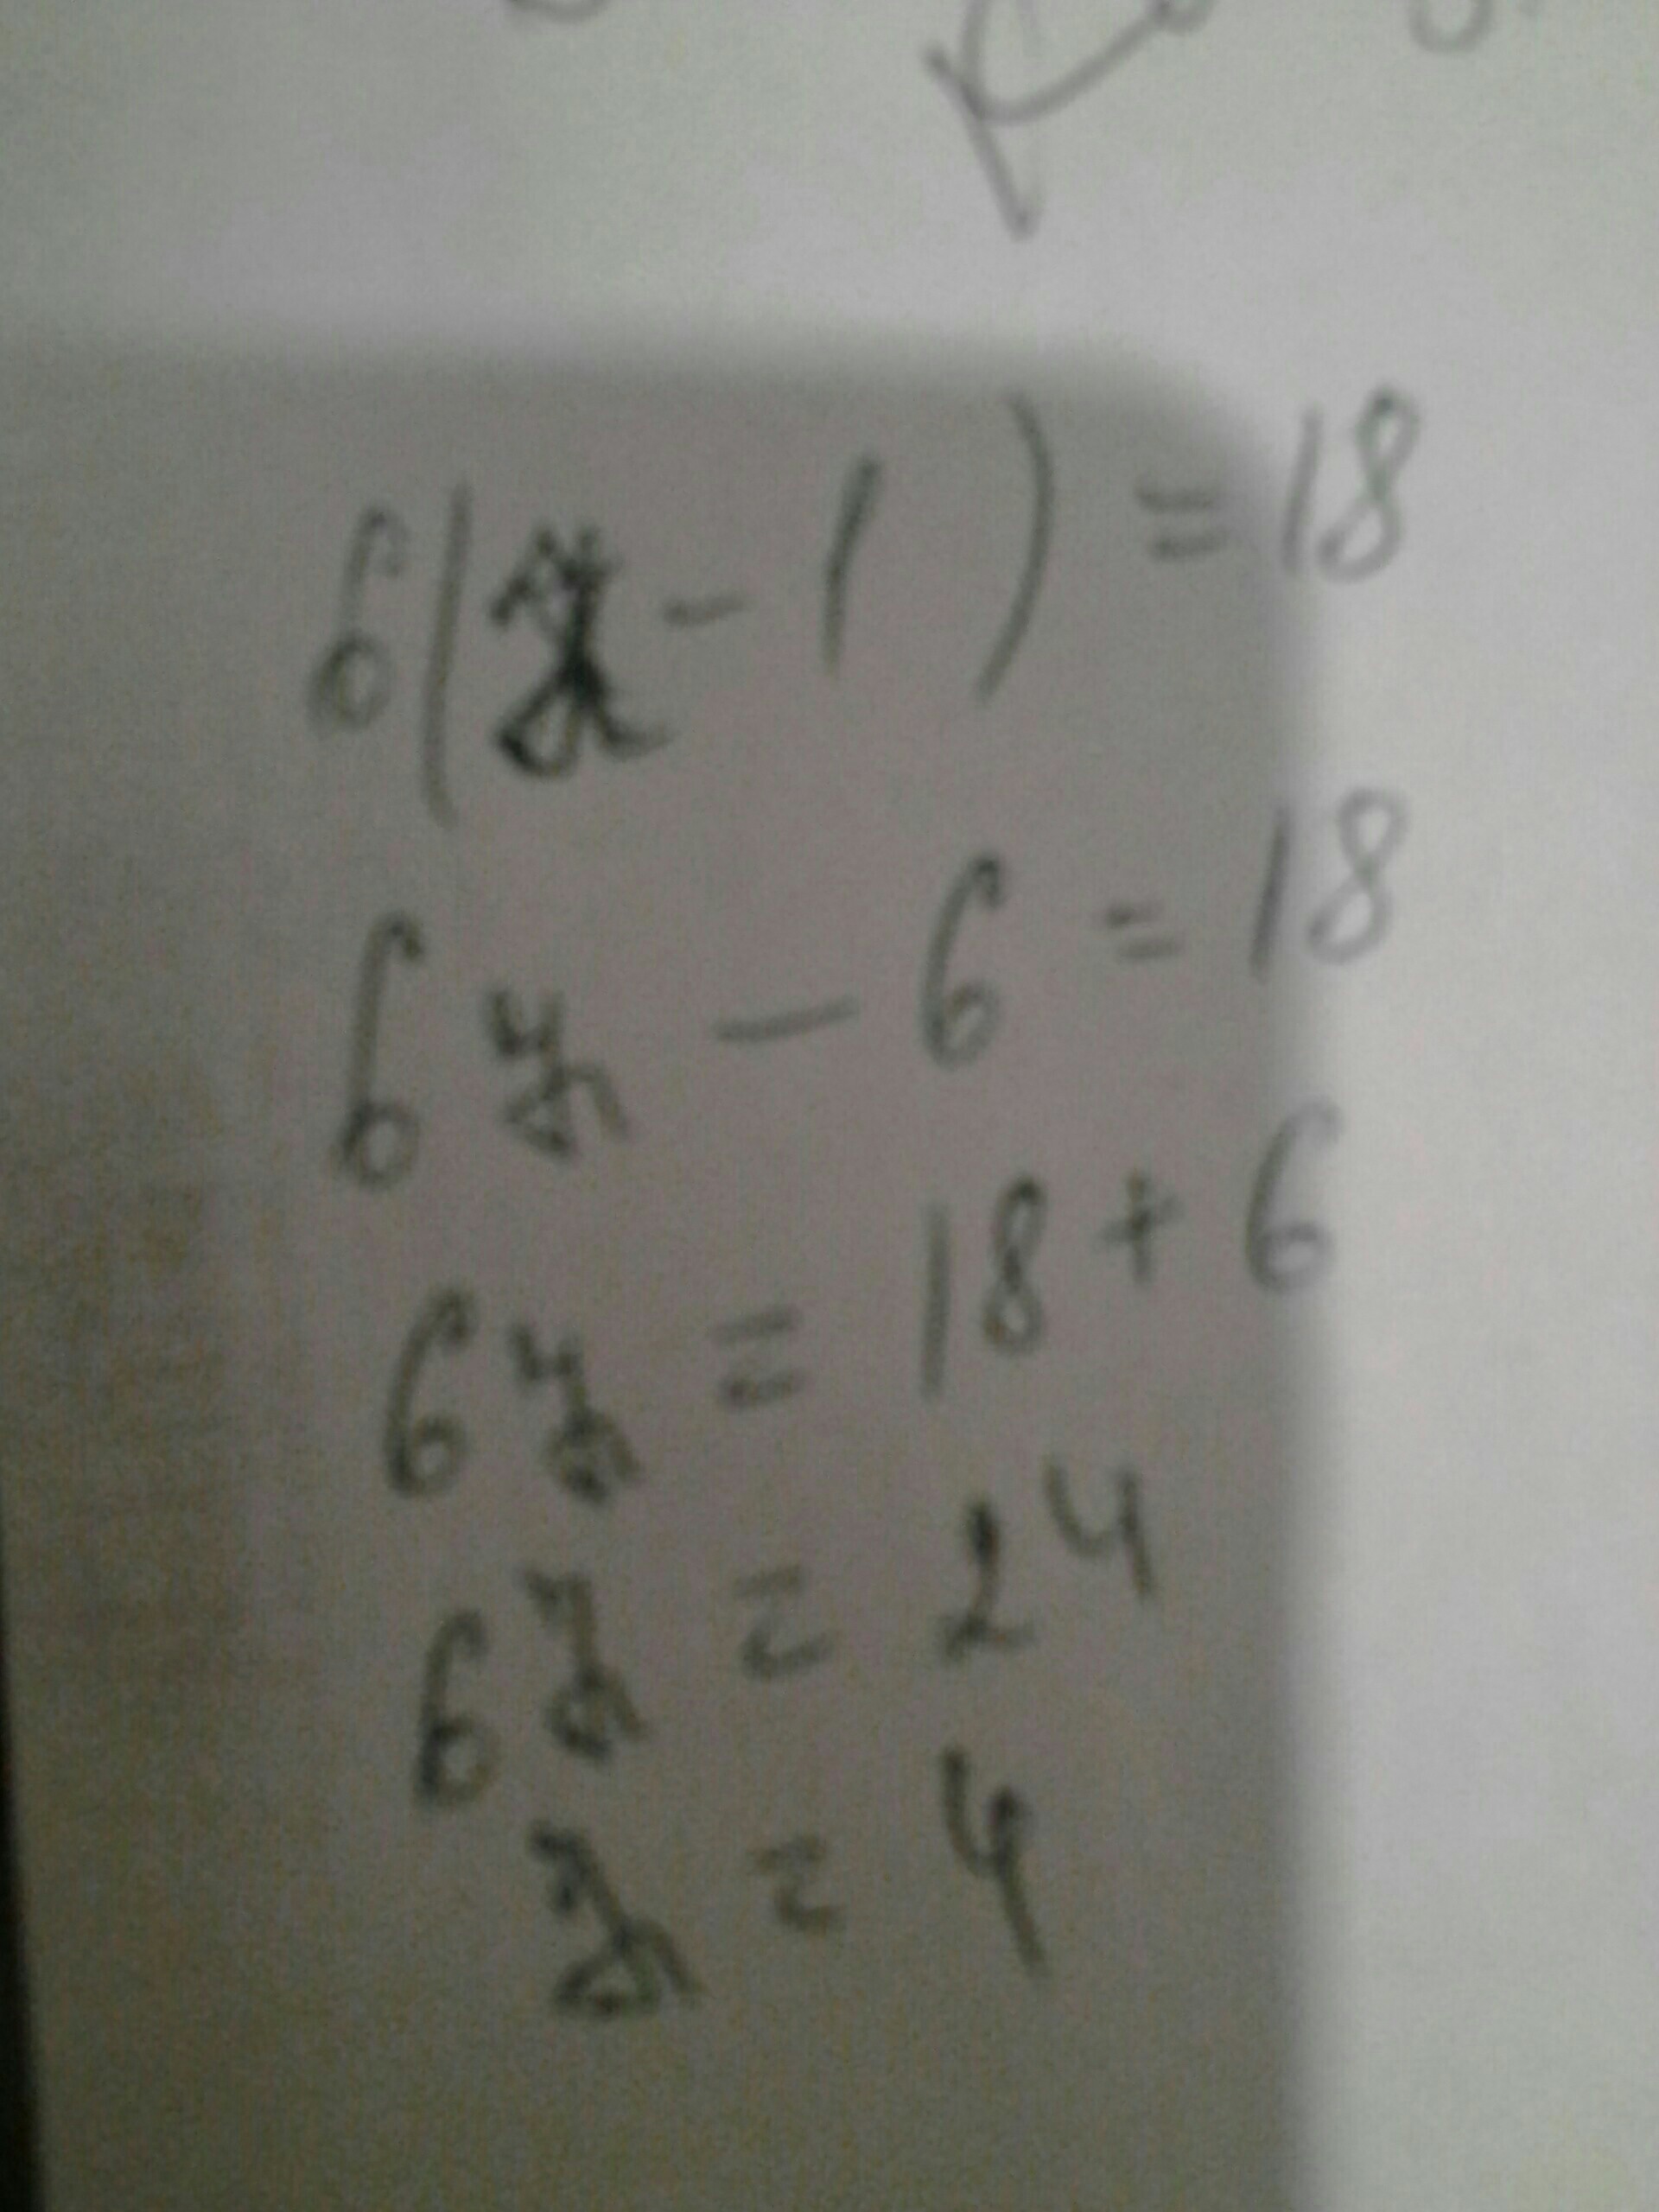 6(y-1) = 18
6y - 6 = 18
6y = 18 + 6
6y = 24
y = 4